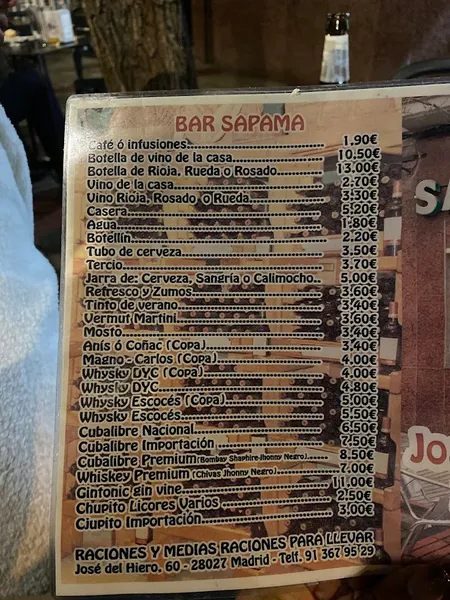 BAR SAPAMA
Café ó infusiones 1.90€
Botella de vino de la casa 10.50€
Botella de Rioja, Rueda o Rosado 13.00€
Vino de la casa 2.70€
Vino Rioja, Rosado o Rueda 3.30€
Casera
Agua 1.80€
Botellín 2.20€
Tubo de cerveza 3.50€
Tercio 3.70€
Jarra de: Cerveza, Sangría o Calimocho 5.00€
Refresco y Zumos 3.60€
Tinto de verano 3.40€
Vermut Martini 3.60€
Mosto 3.40€
Anís ó Coñac (Copa) 3.40€
Magno - Carlos (Copa) 4.00€
Whysky DYC (Copa) 4.00€
Whysky DYC
Whysky Escocés (Copa) 5.00€
Whysky Escocés
Cubalibre Nacional
Cubalibre Importación
Cubalibre Premium (Bombay Shaphire-Jhonny Negro) 8.50€
Whiskey Premium (Chivas Jhonny Negro) 7.00€
Gintonic gin vine 11.00€
Chupito Licores Varios 2.50€
Cjupito Importación 3.00€
RACIONES Y MEDIAS RACIONES PARA LLEVAR
José del Hiero, 60 - 28027 Madrid - Telf. 91 367 95 29